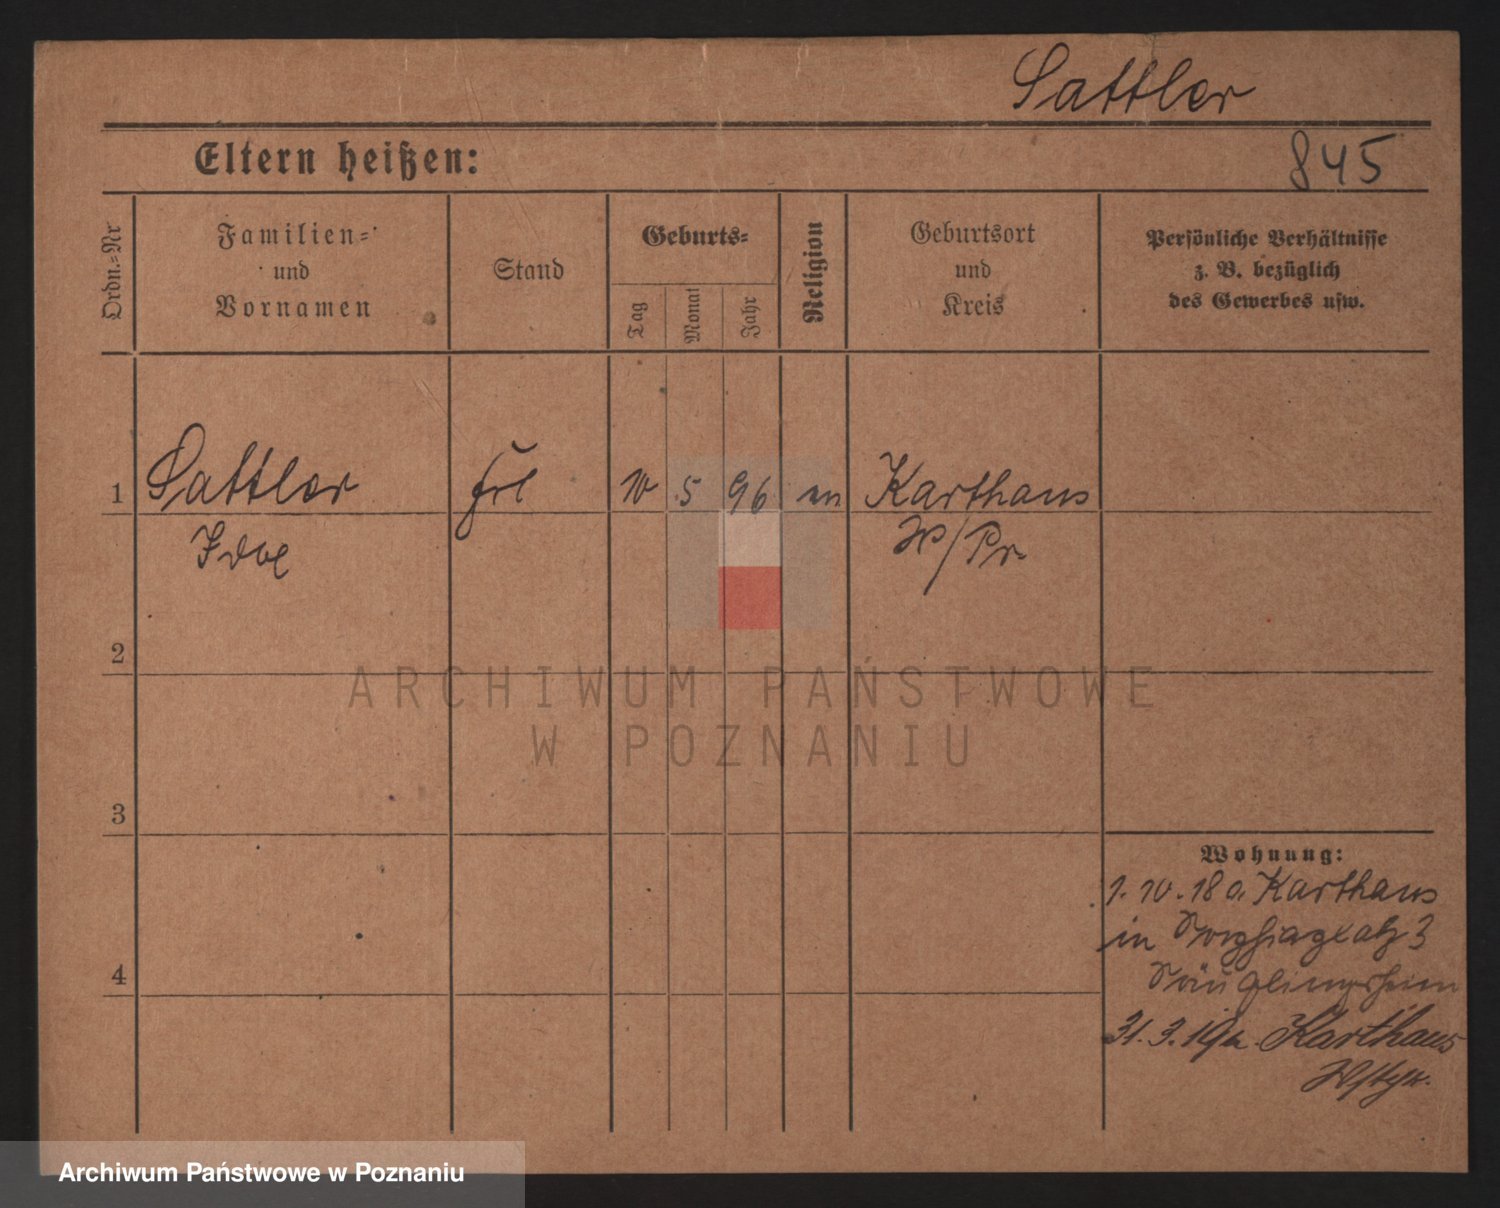 Sattler
Eltern heißen:
845
Ordn.=Nr
Familien=
und
Vornamen
Stand
Geburts=
Tag
Monat
Jahr
Religion
Geburtsort
und
Kreis
Persönliche Verhältnisse
z. B. bezüglich
des Gewerbes usw.
1
Sattler
Frl
10
5
96
ev
Karthaus
W/Pr.
2
3
4
Wohnung:
1.10.18 a. Karthaus
in 3
Säuglingsheim
31.3.19 n. Karthaus
ARCHIWUM PAŃSTWOWE
W POZNANIU
Archiwum Państwowe w Poznaniu